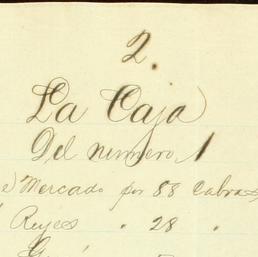 2.
La Caja
Del numero 1
Mercado por 88 Cabras
Reyes " 28 "